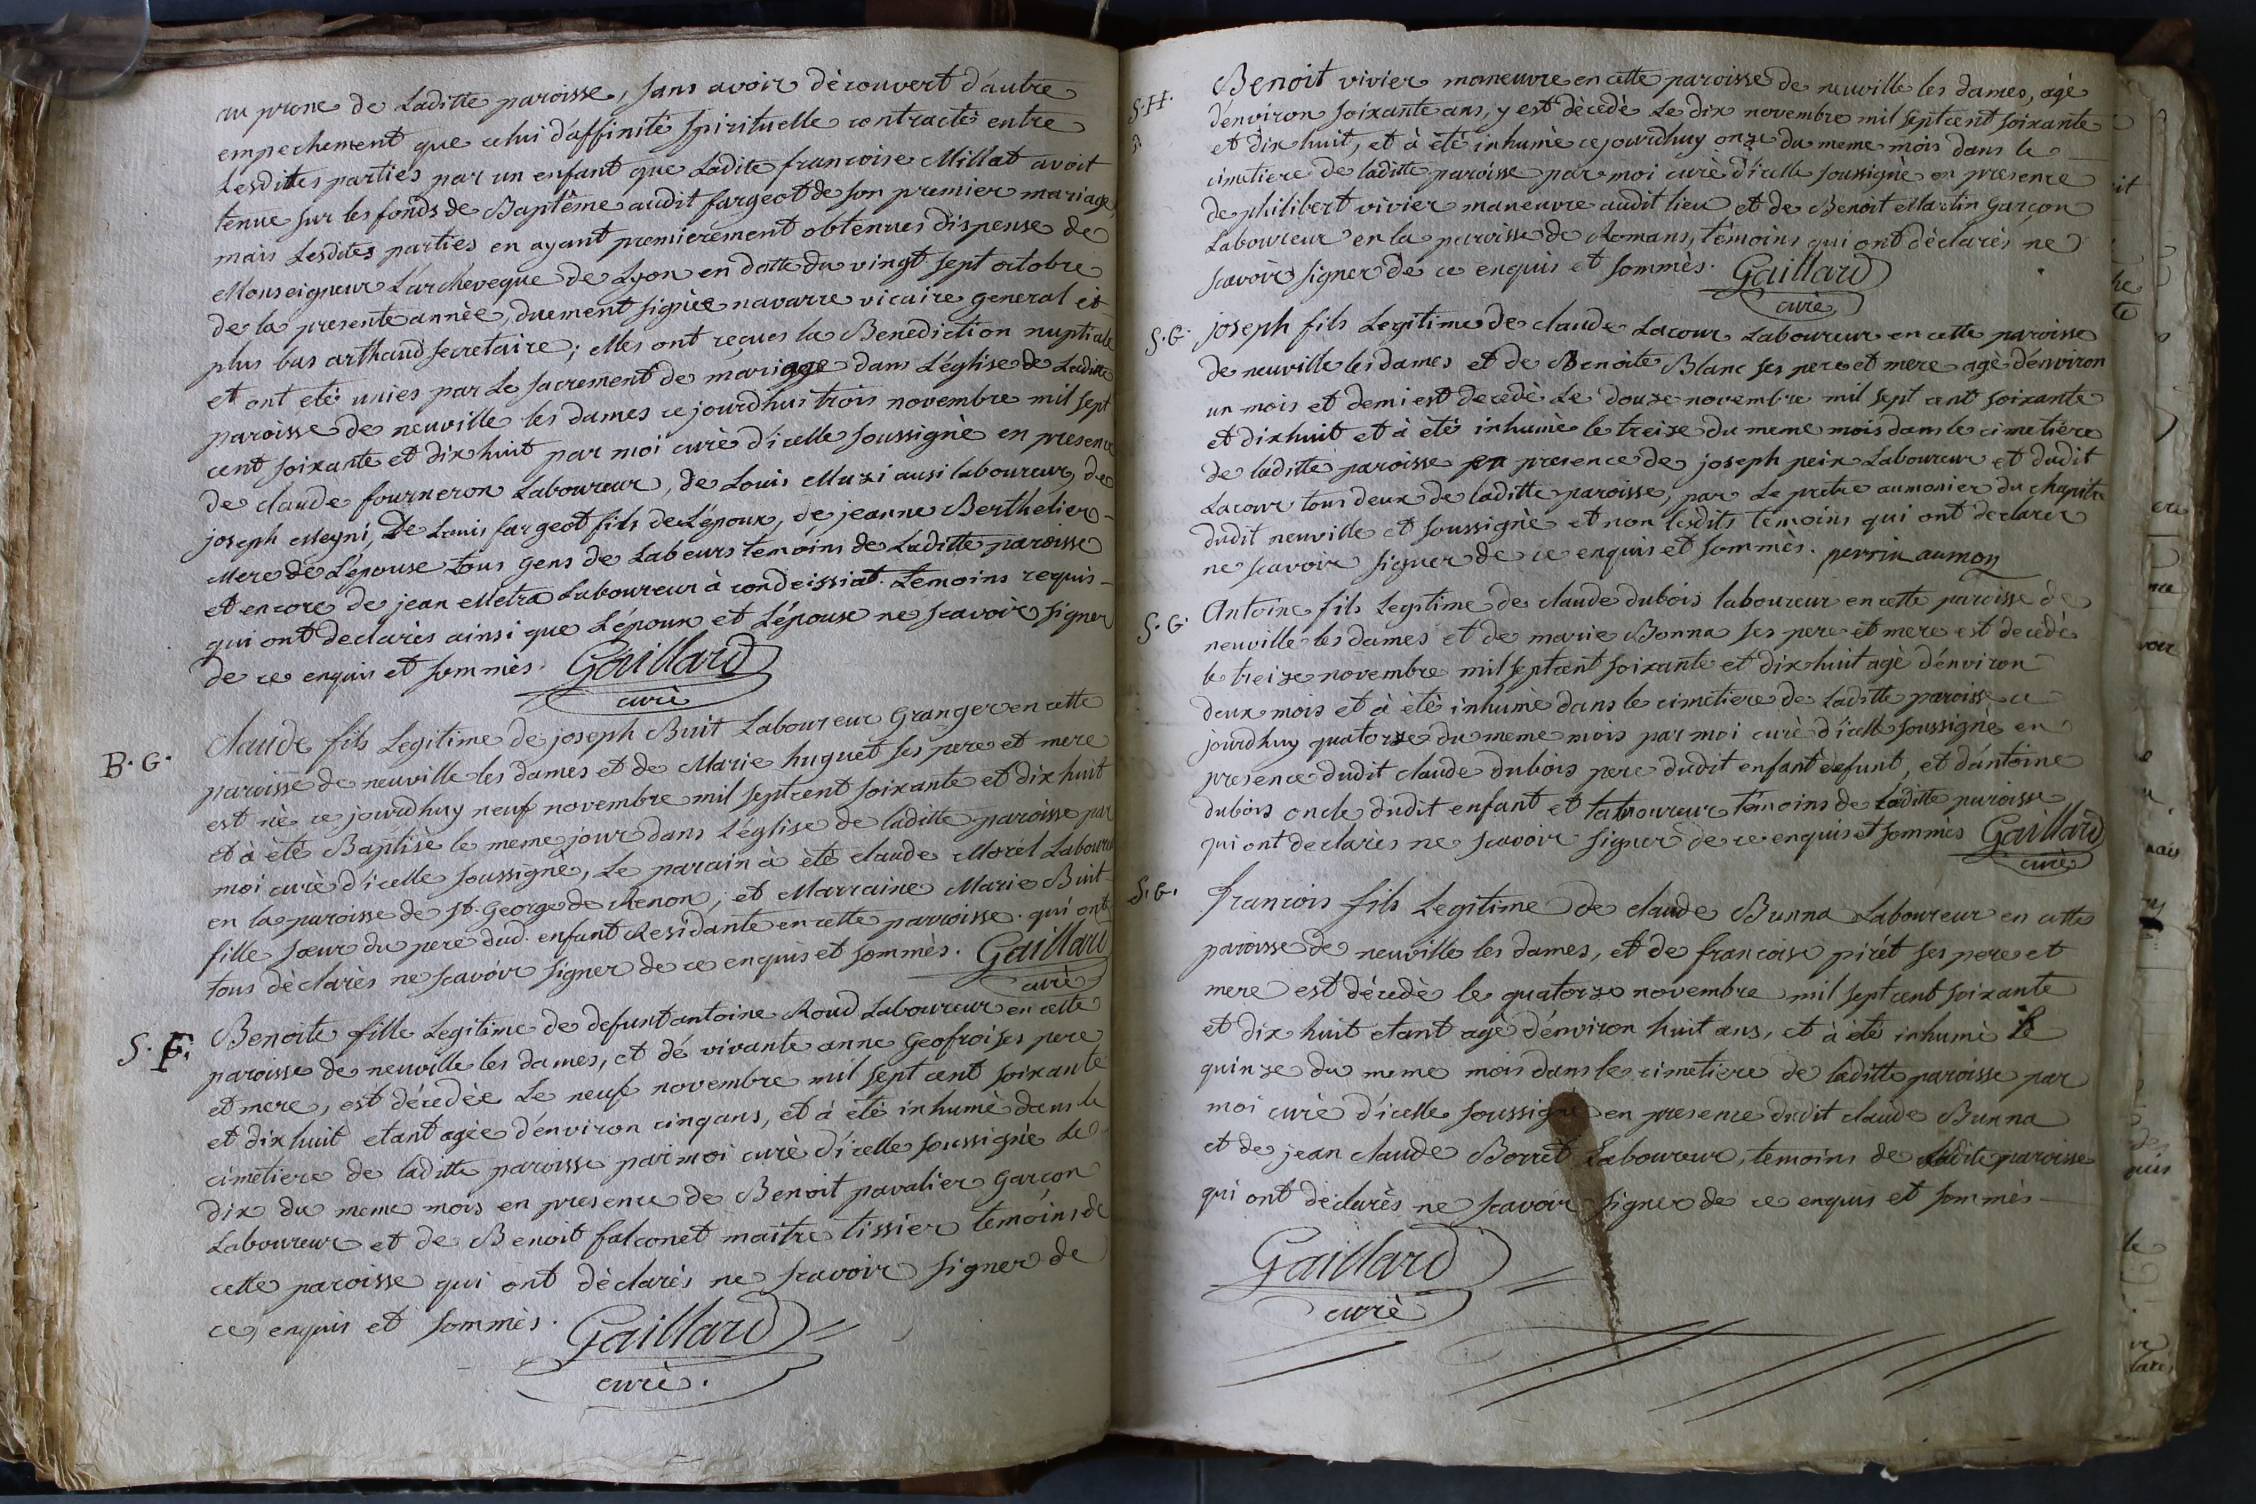 au prone de Laditte paroisse, sans avoir dècouvert d'autre
empechement que celui d'affinité spirituelle contracté entre
Lesdittes parties par un enfant que Ladite francoise Millat avoit
tenue sur les fonds de Baptême audit fargeot de son premier mariage,
mais Lesdites parties en ayant premierement obtenues dispense de
Monseigneur L'archeveque de Lyon en datte du vingt sept octobre
de la presente annèe, duement signèe navarre vicaire general et
plus bas arthaud secretaire; elles ont reçues la Benediction nuptiale
et ont eté unies par Le sacrement de mariage dans L'église de Ladite
paroisse de neuville les dames ce jourdhui trois novembre mil sept
cent soixante et dix huit par moi curè d'icelle soussignè en presence
de claude fourneron Laboureur, de Louis Muzi ausi laboureur, de
joseph Meyni, De Louis fargeot fils de L'époux, de jeanne Berthelier
Mere de L'épouse tous gens de Labeurs temoins de Laditte paroisse
et encore de jean Metra Laboureur à condeissiat. temoins requis
qui ont declarès ainsi que L'époux et L'épouse ne scavoir signer
de ce enquis et sommès. Gaillard
curè
B. G. Claude fils Legitime de joseph Buit Laboureur Granger en cette
paroisse de neuville les dames et de Marie huguet ses pere et mere
est nè ce jourdhuy neuf novembre mil sept cent soixante et dix huit
et à èté Baptisè le meme jour dans L'église de laditte paroisse par
moi curè d'icelle soussignè, Le parain à èté claude Morél Laboureur
en la paroisse de St. George de Renon; et Marraine Marie Buit
fille sœur du pere dud. enfant Residante en cette parroisse. qui ont
tous dèclarès ne scavoir signer de ce enquis et sommès. Gaillard
curè
S. F. Benoite fille Legitime de defunt antoine Roud Laboureur en cette
paroisse de neuville les dames, et dé vivante anne Geofroi ses pere
et mere, est décedèe Le neuf novembre mil sept cent soixante
et dix huit etant agèe d'environ cinq ans, et à été inhumè dans le
cimetiere de laditte paroisse par moi curè d'icelle soussignè Le
dix du meme mois en presence de Benoit pavalier Garçon
Laboureur et de Benoit falconet maitre tissier temoins de
cette paroisse qui ont dèclarès ne scavoir signer de
ce, enquis et sommès. Gaillard
curè.
S. H. Benoit vivier maneuvre en cette paroisse de neuville les dames, agè
d'environ soixante ans, y est dècedè Le dix novembre mil sept cent soixante
et dix huit, et à été inhumè cejourdhuy onze du meme mois dans le
cimetiere de laditte paroisse par moi curè d'icelle soussignè en presence
de philibert vivier maneuvre audit lieu et de Benoit Martin Garçon
Laboureur en la paroisse de Romans, tèmoins qui ont dèclarès ne
scavoir signer de ce enquis et sommès. Gaillard
curè
S. G. joseph fils Legitime de claude Lacour Laboureur en cette paroisse
de neuville les dames et de Benoite Blanc ses pere et mere agè d'environ
un mois et demi est decedè Le douze novembre mil sept cent soixante
et dix huit et à été inhumè le treize du meme mois dans le cimetiere
de laditte paroisse en presence de joseph peix Laboureur et dudit
Lacour tous deux de laditte paroisse, par Le pretre aumonier du chapitre
dudit neuville et soussignè et non lesdits temoins qui ont declarer
ne scavoir signer de ce enquis et sommès. perrin aumon
S. G. Antoine fils Legitime de claude dubois laboureur en cette paroisse de
neuville les dames et de marie Bonna ses pere et mere est decèdè
le treize novembre mil sept cent soixante et dix huit agè d'environ
deux mois et à èté inhumè dans le cimetiere de Laditte paroisse ce
jourdhuy quatorze du meme mois par moi curè d'icelle soussignè en
presence dudit claude dubois pere dudit enfant defunt, et d'antoine
dubois oncle dudit enfant et laboureur tèmoins de Laditte paroisse
qui ont declarès ne scavoir signer de ce enquis et sommès Gaillard
curè
S. G. francois fils Legitime de claude Bunna Laboureur en cette
paroisse de neuville les dames, et de francoise pirét ses pere et
mere est dècedè le quatorze novembre mil sept cent soixante
et dix huit etant agè d'environ huit ans, et à èté inhumè le
quinze du meme mois dans le cimetiere de laditte paroisse par
moi curè d'icelle soussignè en presence dudit claude Bunna
et de jean claude Borret Laboureur, temoins de ladite paroisse
qui ont dèclarès ne scavoir signer de ce enquis et sommès
Gaillard
curè